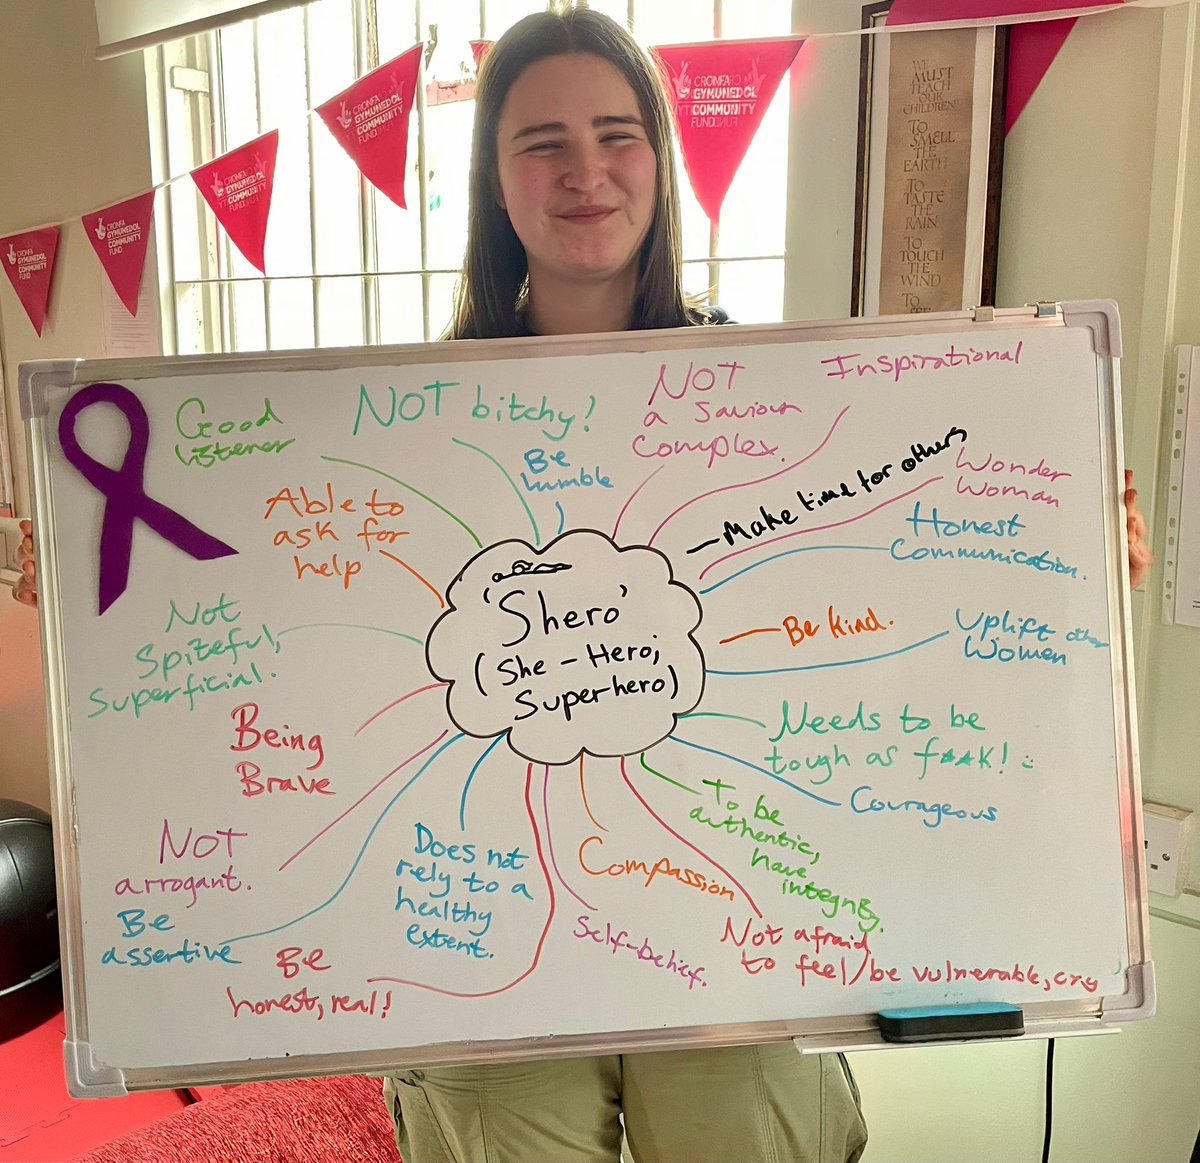 CRONFA
GYMUNEDOL
COMMUNITY
FUND
CRONFA
GYMUNEDOL
COMMUNITY
FUND
CRONFA
GYMUNEDOL
COMMUNITY
FUND
CRONFA
GYMUNEDOL
COMMUNITY
FUND
CRONFA
GYMUNEDOL
COMMUNITY
FUND
WE
MUST
TEACH
OUR
CHILDREN
TO
SMELL
THE
EARTH
TO
TASTE
THE
RAIN
TO
TOUCH
THE
WIND
TO
Good
listener
NOT bitchy!
Be
humble
NOT
a saviour
complex.
Inspirational
Make time for others
Wonder
Woman
Honest
Communication.
Able to
ask for
help
'Shero'
(She-Hero;
Superhero)
Be kind.
Uplift other
Women
Not
Spiteful,
superficial.
Being
Brave
Needs to be
tough as f**k! :)
Courageous
To be
authentic,
have
integrity.
NOT
arrogant.
Be
assertive
Does not
rely to a
healthy
extent.
Compassion
Self-belief.
Not afraid
to feel/be vulnerable, cry
Be
honest, real!